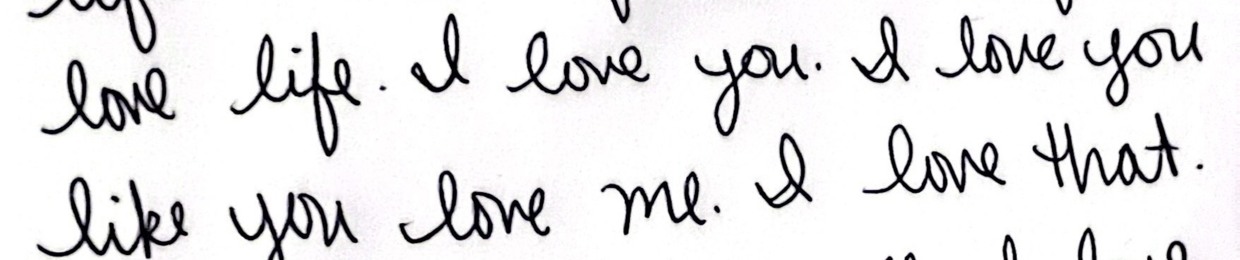 love life. I love you. I love you
like you love me. I love that.